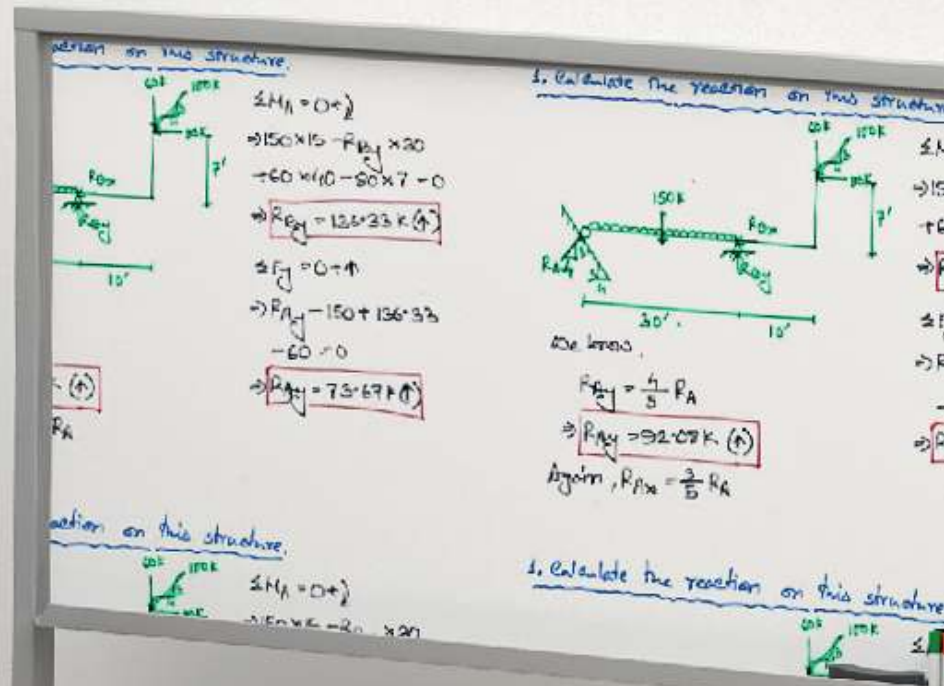 action on this structure.
60k 100k
80k
7'
RBx
RBy
10'
(↑)
RA
ΣMA = 0 +
⇒ 150×15 - RBy × 30
+60×40 - 80×7 = 0
⇒ RBy = 136.33 k (↑)
ΣFy = 0 + ↑
⇒ RAy - 150 + 136.33
-60 = 0
⇒ RAy = 73.67 k (↑)
1. Calculate the reaction on this structure
60k 100k
80k
7'
150k
RBx
RBy
30'
10'
We know,
RAy = 4/5 RA
⇒ RAy = 92.08k (↑)
Again, RAx = 3/5 RA
action on this structure.
60k 100k
ΣMA = 0 +
1. Calculate the reaction on this structure
60k 100k